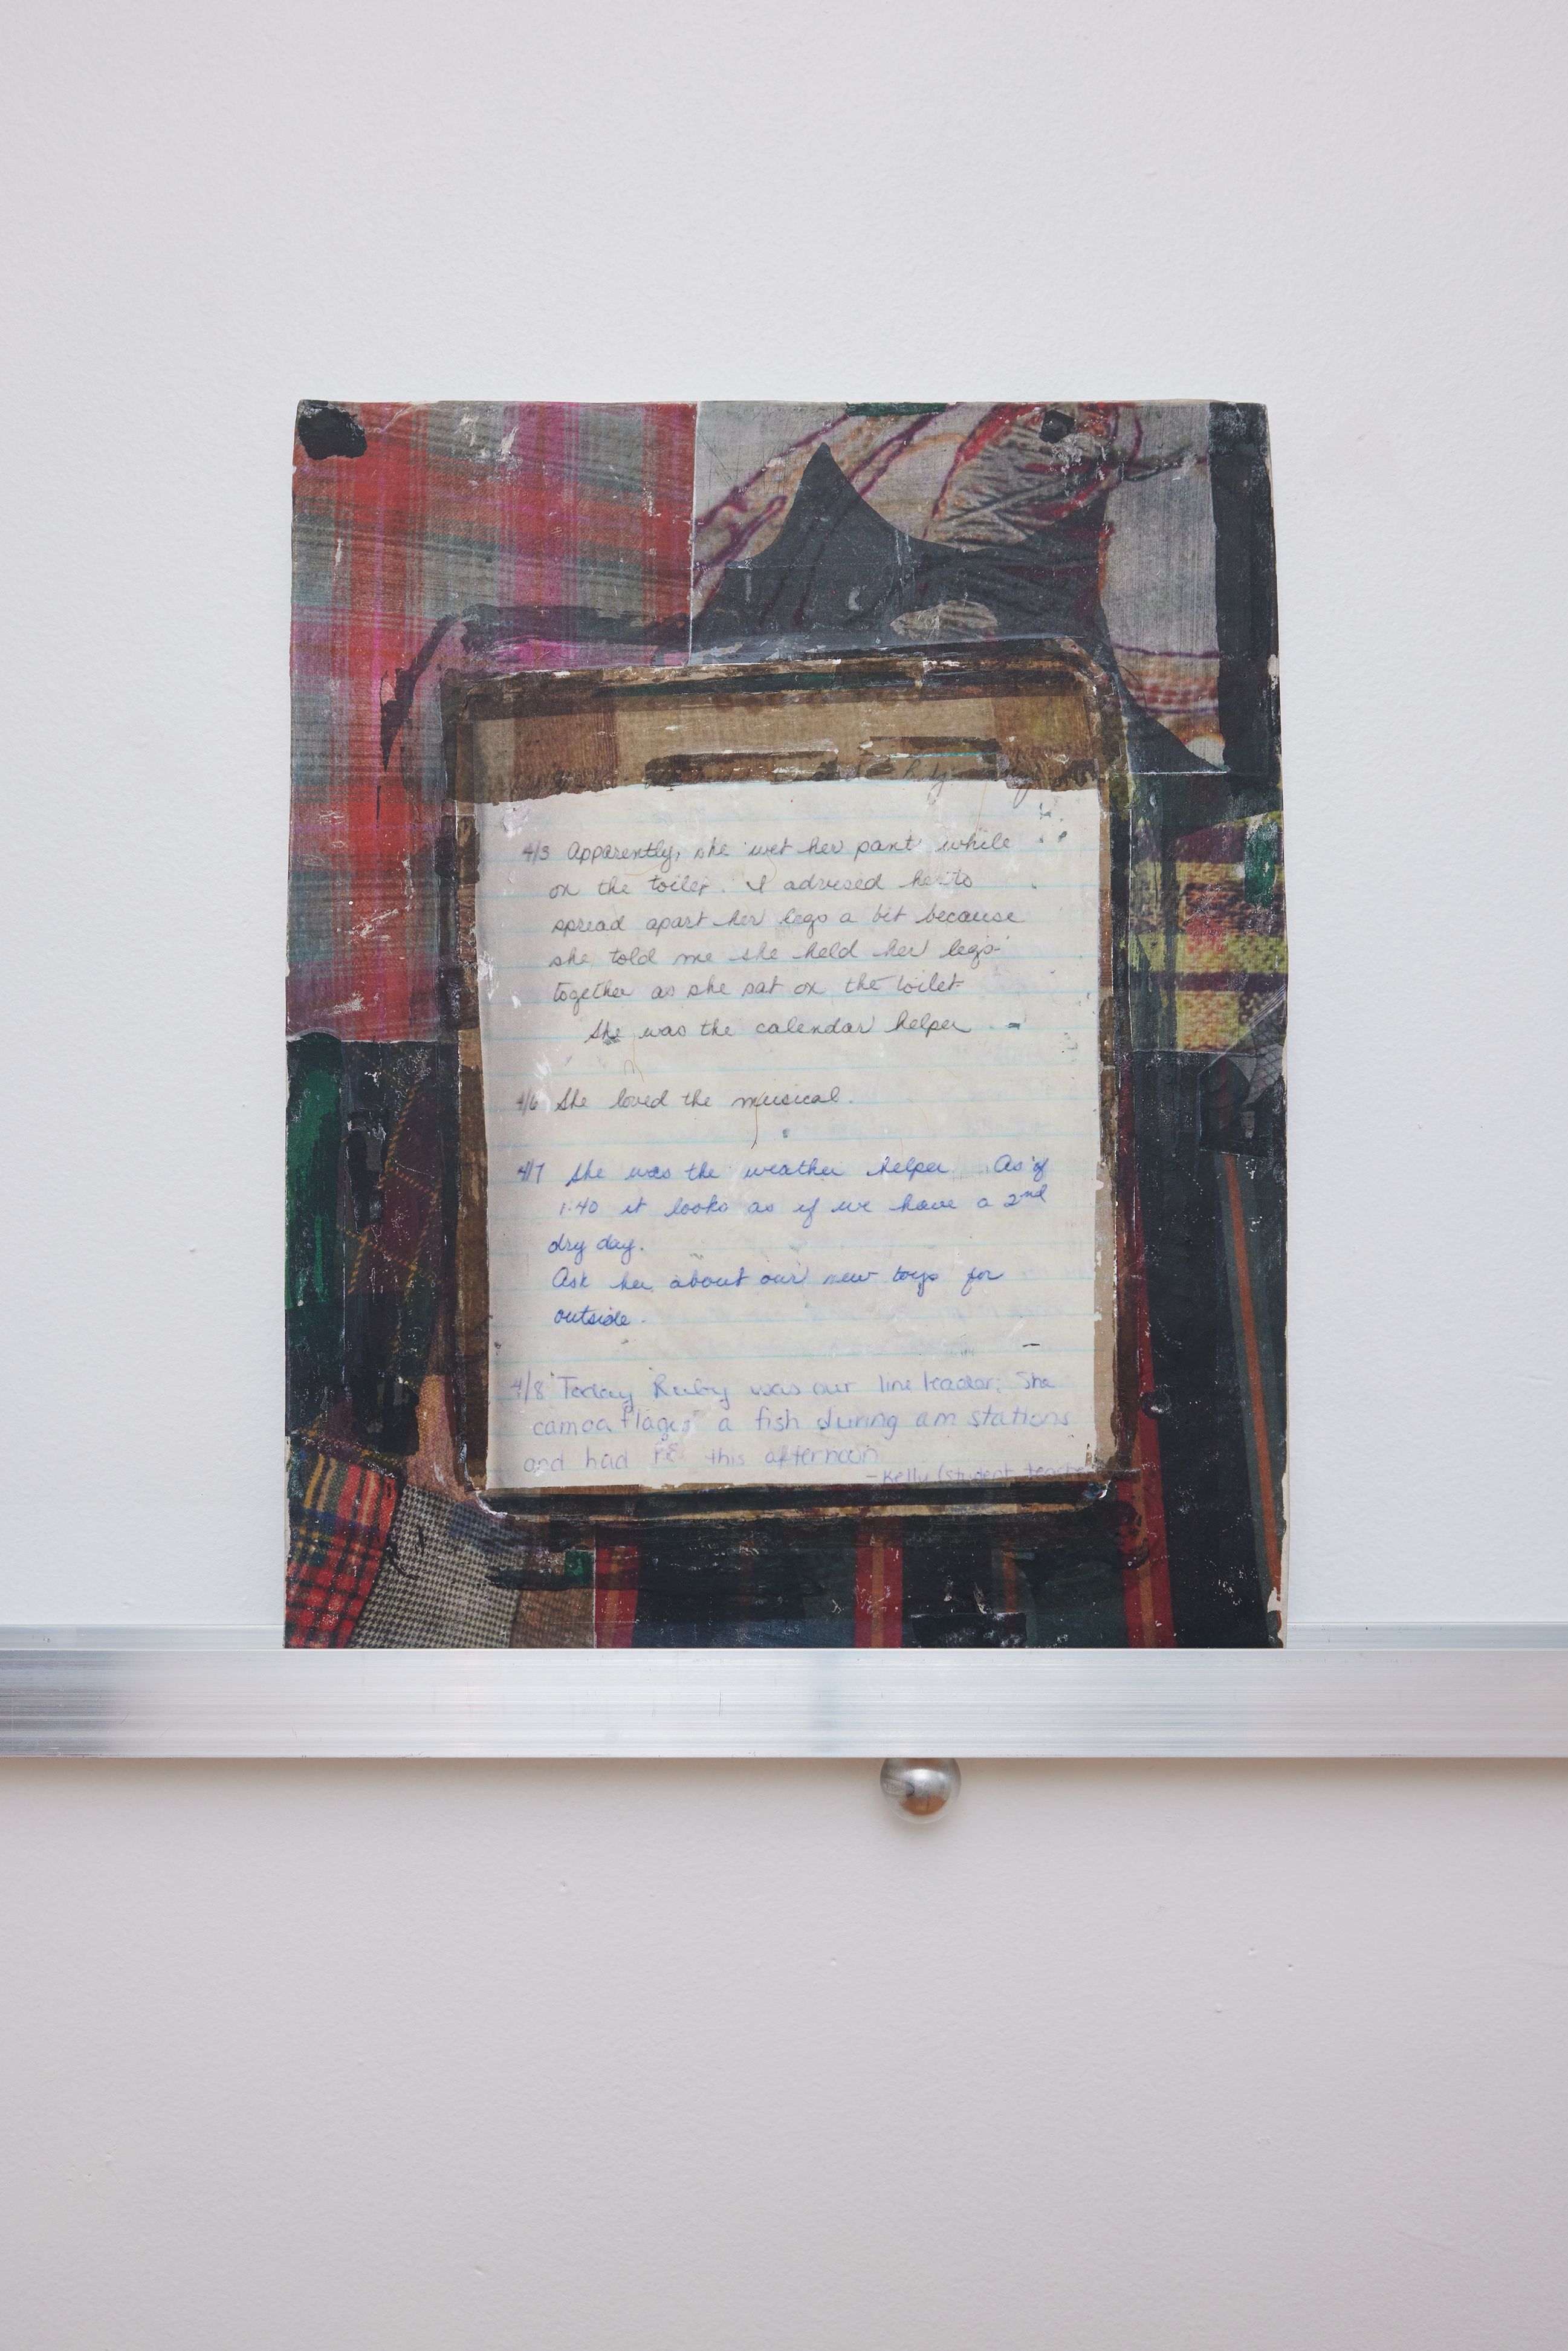 4/3 Apparently, she wet her pant while
on the toilet. I advised her to
spread apart her legs a bit because
she told me she held her legs
together as she sat on the toilet
She was the calendar helper
4/6 She loved the musical.
4/7 She was the weather helper. As of
1:40 it looks as if we have a 2nd
dry day.
Ask her about our new toys for
outside.
4/8 Today Ruby was our line leader. She
camoaflages a fish during am stations
and had P.E. this afternoon
- Kelly (student teacher